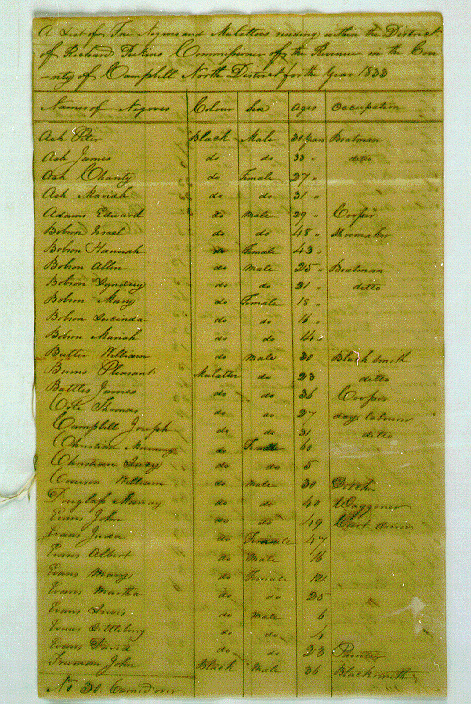 A List of Free Negroes and Mulattoes residing within the District
of Richard Perkins Commissioner of the Revenue in the Cou-
nty of Campbell North District for the Year 1833
Names of Negroes Colour Sex ages Occupation
Ash Pete Black Male Boatman
Ash James do do 33 ditto
Ash Charity do Female 27
Ash Mariah do do 31
Adams Edward do Male 29 Cooper
Bobson Israel do do 45 Shoemaker
Bobson Hannah do Female 43
Bobson Allen do Male 25 Boatman
Bobson do do 21 ditto
Bobson Mary do Female 18
Bobson Lucinda do do 16
Bobson Mariah do do 14
Butler William do Male 30 Blacksmith
Burns Pleasant Mulatto do 23 ditto
Battles James do do 36 Cooper
Cole Thomas do do 27 day laborer
Campbell Joseph do do 31 ditto
Christian do Female 60
Christian do do 5
William do Male 30
Murray do do 40 Waggoner
Evans John do do 19
Evans do Female 47
Evans Albert do Male 16
Evans Mary do Female
Evans Martha do do 20
Evans Lewis do Male 6
Evans do do 4
Evans do do 23
Freeman John Black Male 36 Blacksmith
No 30